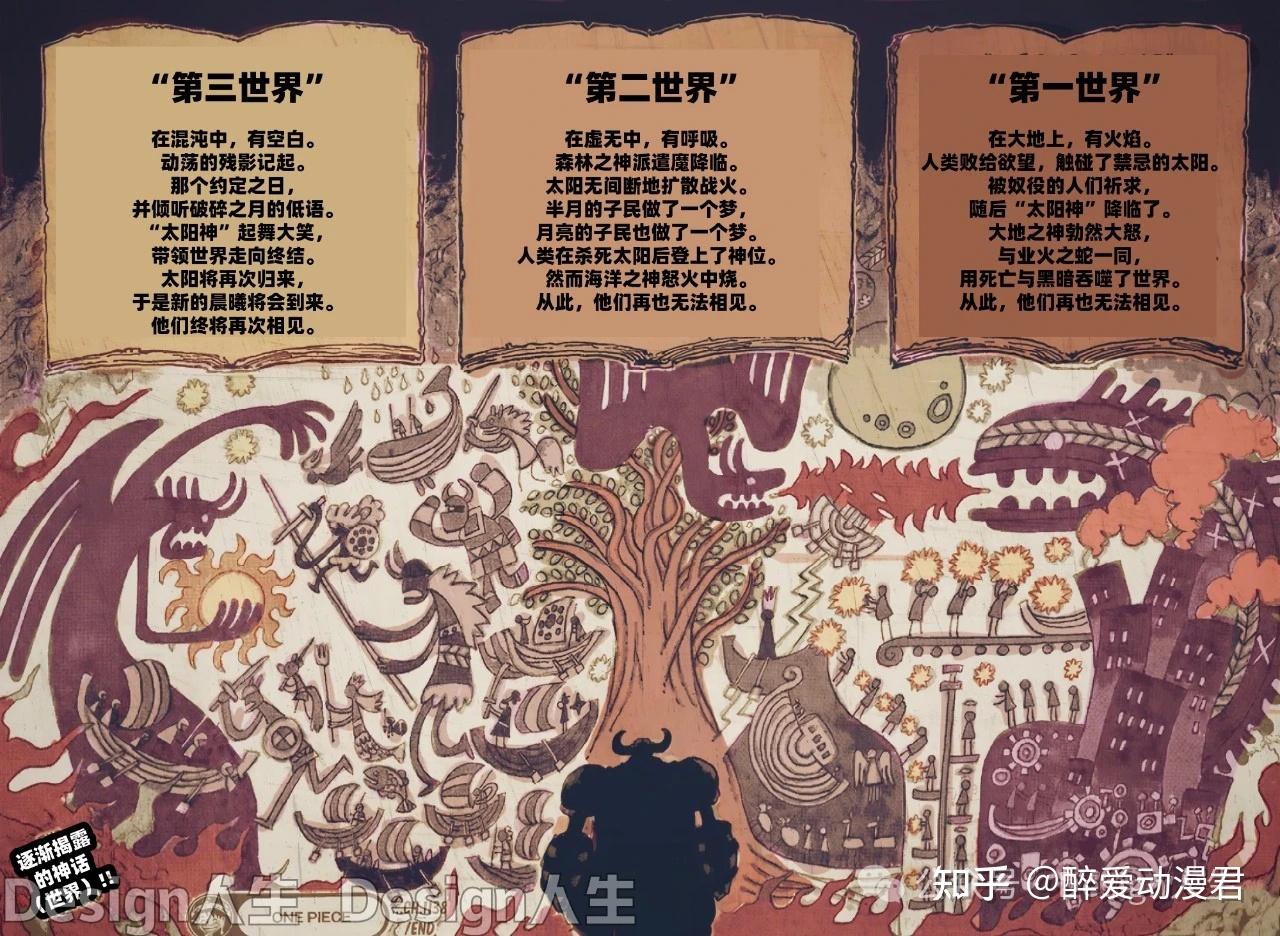 “第三世界”
在混沌中，有空白。
动荡的残影记起。
那个约定之日，
并倾听破碎之月的低语。
“太阳神”起舞大笑，
带领世界走向终结。
太阳将再次归来，
于是新的晨曦将会到来。
他们终将再次相见。
“第二世界”
在虚无中，有呼吸。
森林之神派遣魔降临。
太阳无间断地扩散战火。
半月的子民做了一个梦，
月亮的子民也做了一个梦。
人类在杀死太阳后登上了神位。
然而海洋之神怒火中烧。
从此，他们再也无法相见。
“第一世界”
在大地上，有火焰。
人类败给欲望，触碰了禁忌的太阳。
被奴役的人们祈求，
随后“太阳神”降临了。
大地之神勃然大怒，
与业火之蛇一同，
用死亡与黑暗吞噬了世界。
从此，他们再也无法相见。
逐渐揭露
的神话
（世界）!!
Design人生 Design人生
ONE PIECE
/END
知乎 @醉爱动漫君